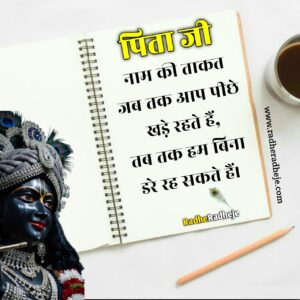 पिता जी
नाम की ताकत
जब तक आप पीछे
खड़े रहते हैं,
तब तक हम बिना
डरे रह सकते हैं।
RadheRadheje
www.radheradheje.com